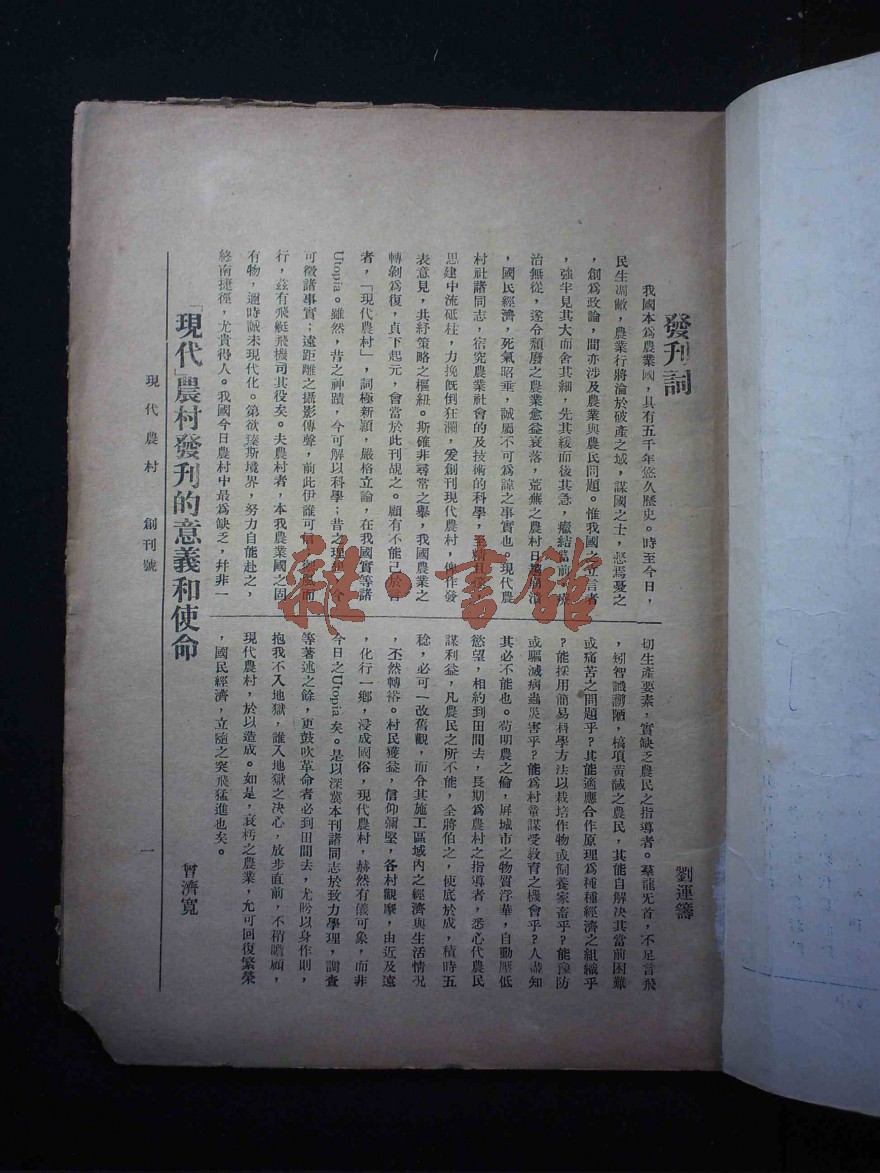 發刊詞
劉運籌
我國本為農業國，具有五千年悠久歷史。時至今日，
民生凋敝，農業行將淪於破產之域，謀國之士，怒焉憂之
，創為政論，間亦涉及農業與農民問題。惟我國之立言者
，強半見其大而舍其細，先其緩而後其急，癥結當前，
治無從，遂令頹廢之農業愈益衰落，荒蕪之農村日趨崩潰
，國民經濟，死氣昭垂，誠屬不可為諱之事實也。現代農
村社諸同志，宿究農業社會的及技術的科學，
思建中流砥柱，力挽既倒狂瀾，爰創刊現代農村，俾作發
表意見，共紓策略之樞紐。斯確非尋常之舉，我國農業之
轉剝為復，貞下起元，會當於此刊覘之。顧有不能已於言
者，「現代農村」，詞極新穎，嚴格立論，在我國實等諸
Utopia。雖然，昔之神蹟，今可解以科學；昔之理想，今
可徵諸事實；遠距離之攝影傳聲，前此伊誰可信，
行，茲有飛艇飛機司其役矣。夫農村者，本我農業國之固
有物，適時誠未現代化。第欲臻斯境界，努力自能赴之，
終南捷徑，尤貴得人。我國今日農村中最為缺乏，幷非一
切生產要素，實缺乏農民之指導者。羣龍旡首，不足言飛
，矧智識謭陋，槁項黃馘之農民，其能自解決其當前困難
或痛苦之問題乎？其能適應合作原理為種種經濟之組織乎
？能採用簡易科學方法以栽培作物或飼養家畜乎？能豫防
或驅滅病蟲災害乎？能為村童謀受教育之機會乎？人盡知
其必不能也。苟明農之倫，屏城市之物質浮華，自動壓低
慾望，相約到田間去，長期為農村之指導者，悉心代農民
謀利益，凡農民之所不能，全將伯之，使底於成，積時五
稔，必可一改舊觀，而令其施工區域內之經濟與生活情況
，丕然轉裕。村民獲益，信仰彌堅，各村觀摩，由近及遠
，化行一鄉，浸成國俗，現代農村，赫然有儀可象，而非
今日之Utopia矣。是以深冀本刊諸同志於致力學理，調查
等著述之餘，更鼓吹革命者必到田間去，尤盼以身作則，
抱我不入地獄，誰入地獄之決心，放步直前，不稍瞻顧，
現代農村，於以造成。如是，衰朽之農業，尤可回復繁榮
，國民經濟，立隨之突飛猛進也矣。
「現代」農村發刊的意義和使命
曾濟寬
現代農村　創刊號
一
雜·書館